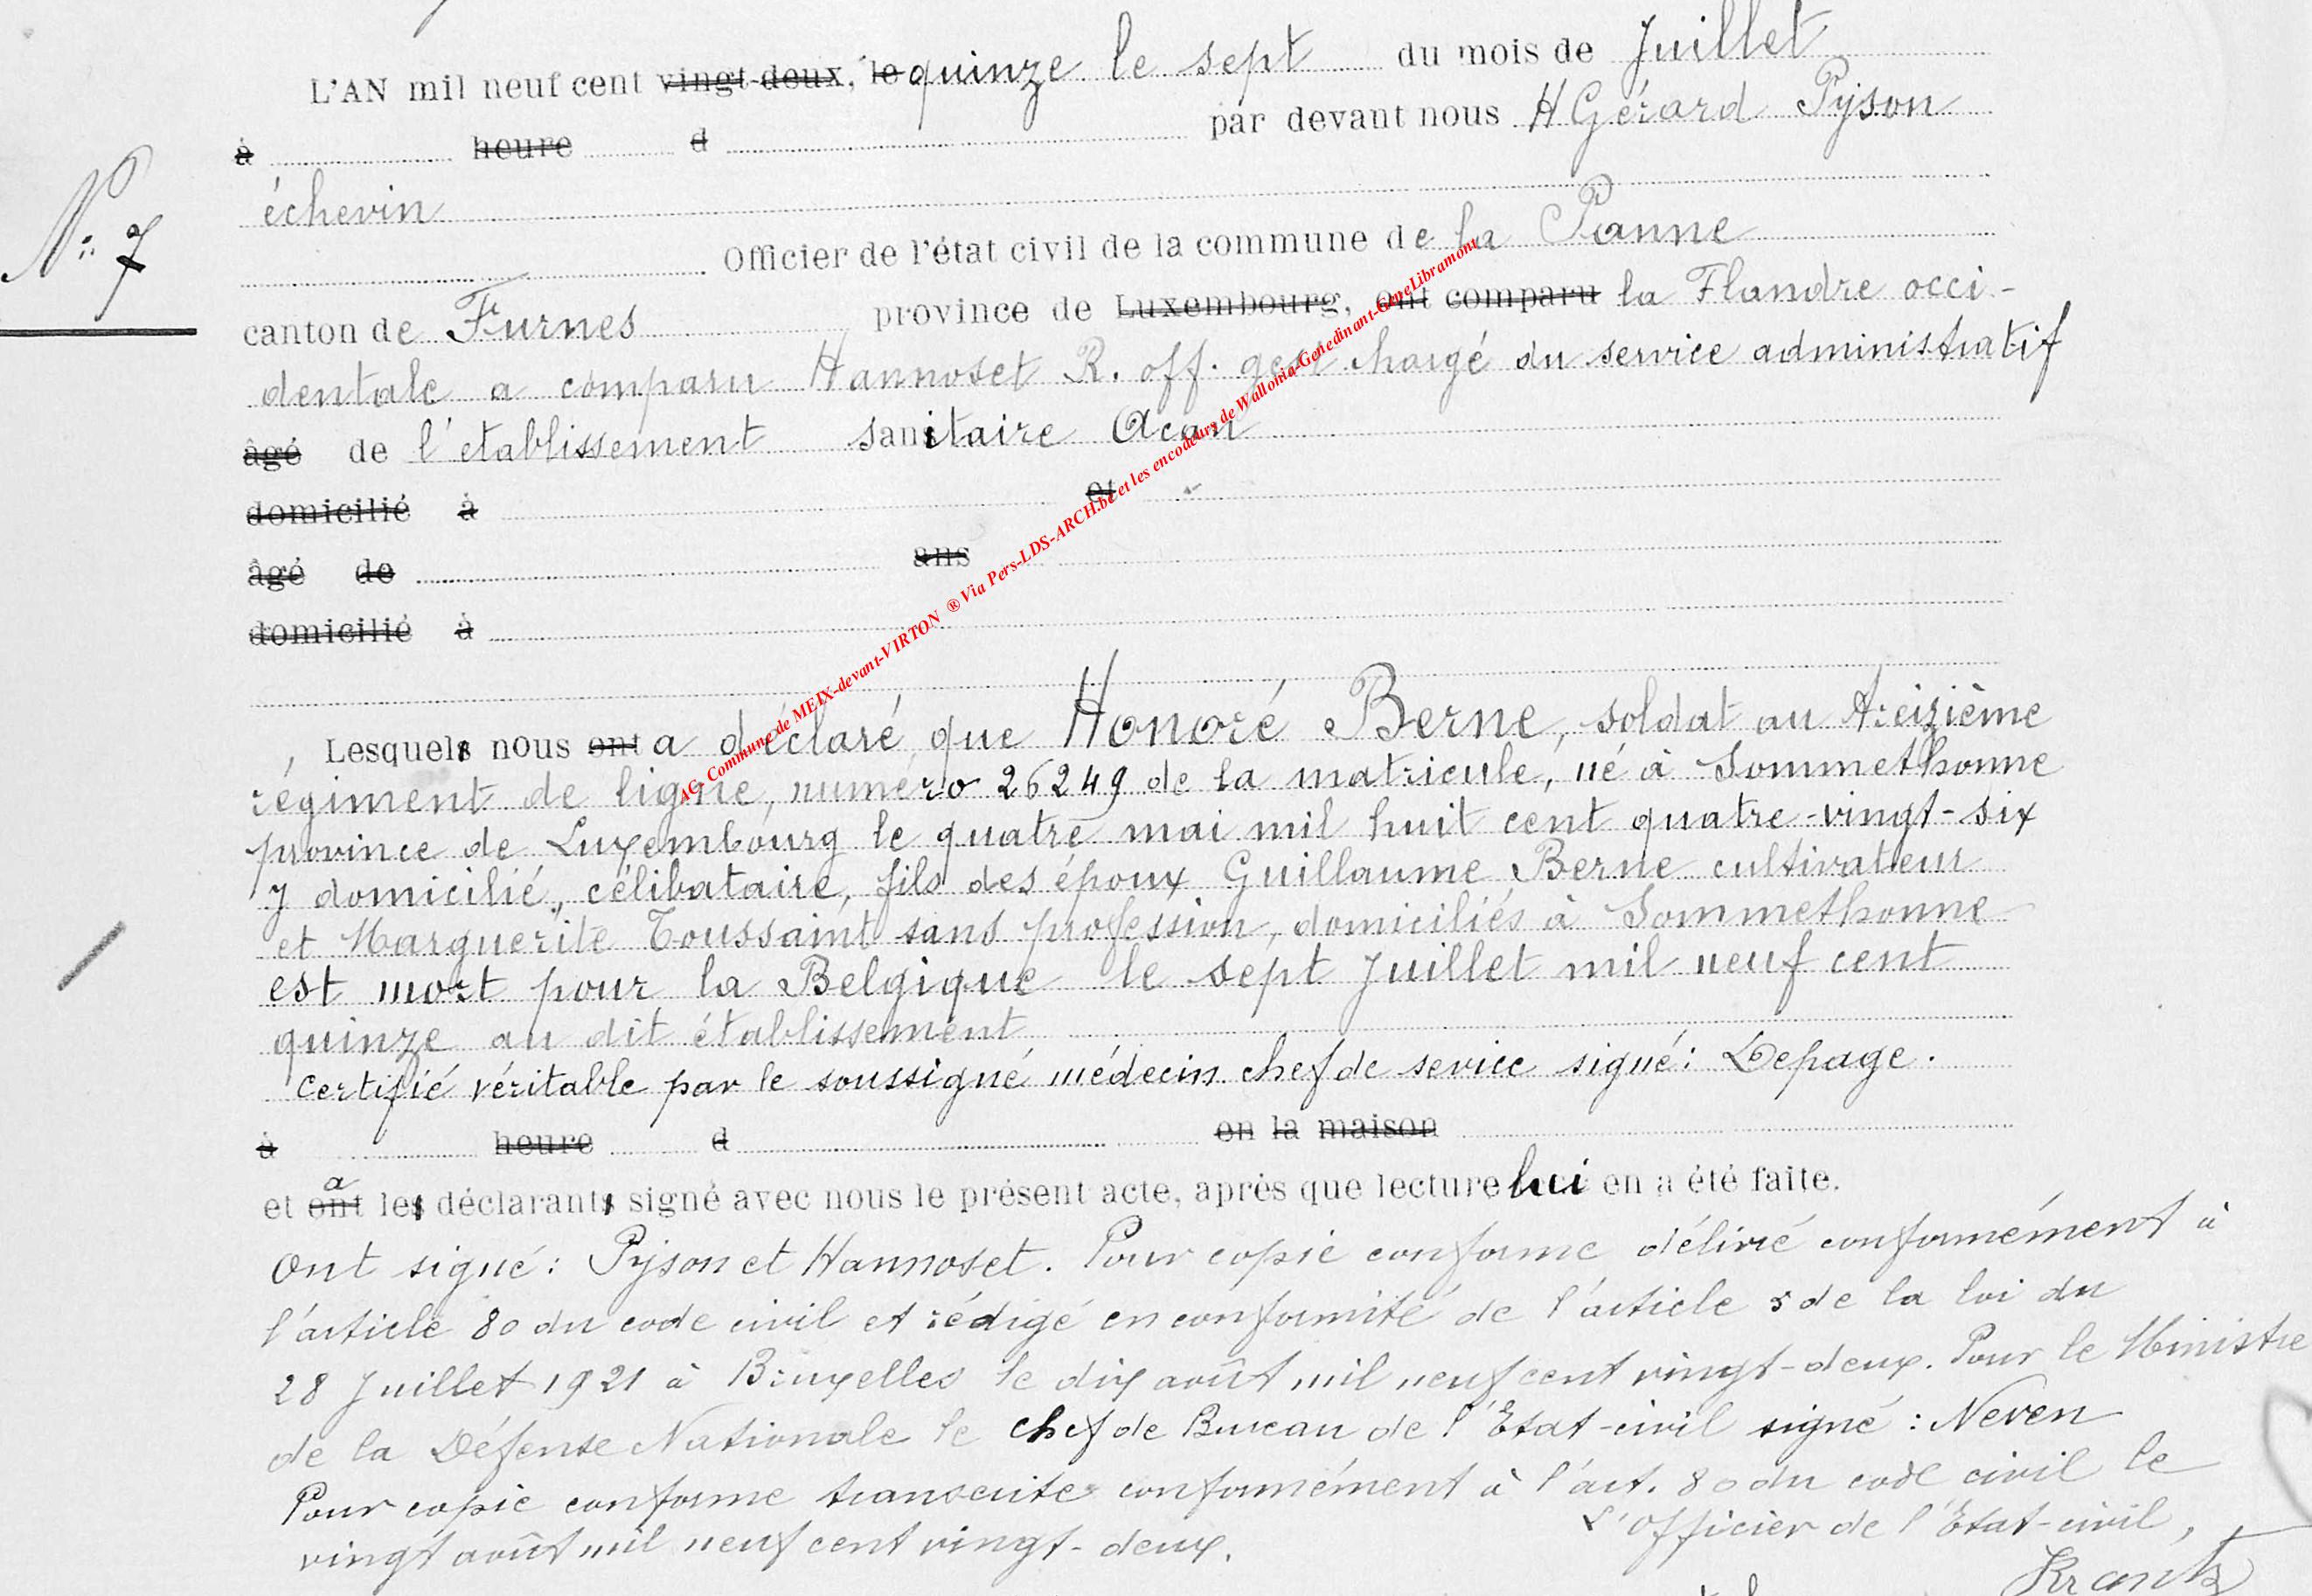 L'AN mil neuf cent vingt-deux, le quinze le sept du mois de Juillet
à heure d par devant nous H Gérard Pyson
échevin
N° 7
Officier de l'état civil de la commune de la Panne
canton de Furnes province de Luxembourg, ont comparu la Flandre occi-
dentale a comparu Hannoset R. off. gest chargé du service administratif
âgé de l'etablissement sanitaire Acan
domicilié à et
âgé de ans
domicilié à
Lesquels nous ont a déclaré que Honoré Berne, soldat au treizième
régiment de ligne, numéro 26249 de la matricule, né à Sommethonne
province de Luxembourg le quatre mai mil huit cent quatre-vingt-six
y domicilié, célibataire, fils des époux Guillaume Berne cultivateur
et Marguerite Toussaint sans profession, domiciliés à Sommethonne
est mort pour la Belgique le sept Juillet mil neuf cent
quinze au dit établissement
Certifié véritable par le soussigné médecin chef de sevice signé: Depage.
à heure d en la maison
et ont a les déclarants signé avec nous le présent acte, après que lecture lui en a été faite.
Ont signé: Pyson et Hannoset. Pour copie conforme délivré conformément à
l'article 80 du code civil et rédigé en conformité de l'article 5 de la loi du
28 Juillet 1921 à Bruxelles le dix août mil neuf cent vingt-deux. Pour le Ministre
de la Défense Nationale le chef de Bureau de l'Etat-civil signé: Neven
Pour copie conforme transcrite conformément à l'art. 80 du code civil le
vingt août mil neuf cent vingt-deux. L'Officier de l'Etat-civil,
Krantz
AG. Commune de MEIX-devant-VIRTON ® Via Pers-LDS-ARCH.be et les encodeurs de Wallonia-Genedinant-GeneLibramont